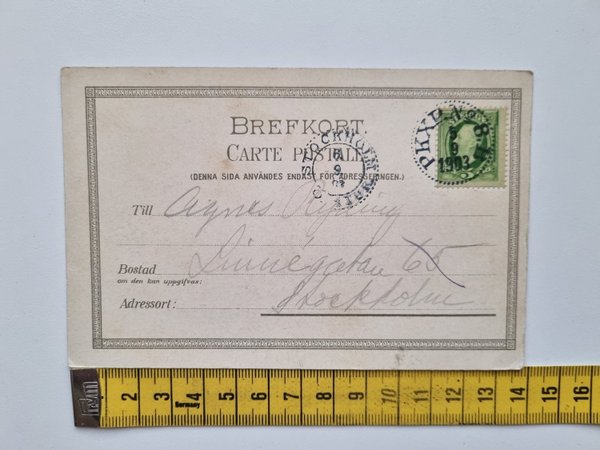 BREFKORT.
CARTE POSTALE
(DENNA SIDA ANVÄNDES ENDAST FÖR ADRESSERINGEN.)
PKXP. No 8
5
9
1903
STOCKHOLM
9
Till Agnes
Bostad Linnégatan 65
om den kan uppgifvas:
Adressort: Stockholm
2 3 4 5 6 7 8 9 10 11 12 13 14 15 16
Germany